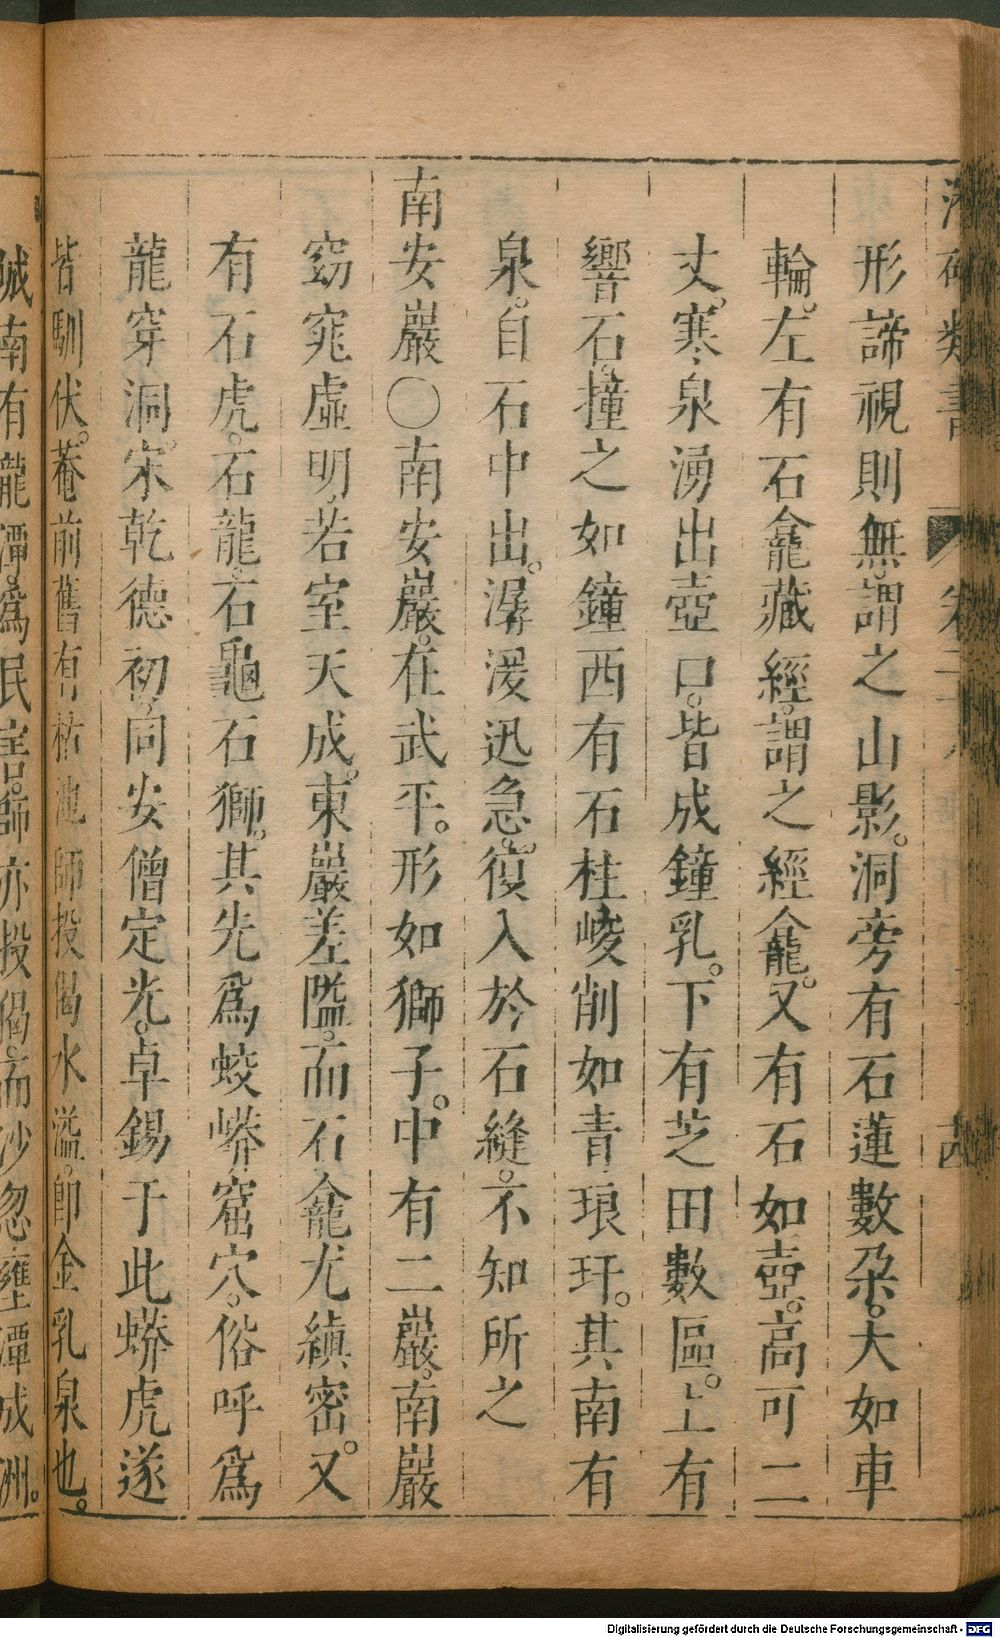 類書
形諦視則無。謂之山影。洞旁有石蓮數朶。大如車
輪。左有石龕藏經。謂之經龕。又有石如壺。高可二
丈。寒泉湧出壺口。皆成鐘乳。下有芝田數區。上有
響石。撞之如鐘西有石柱峻削如青琅玕。其南有
泉。自石中出。潺湲迅急。復入於石縫。不知所之
南安巖〇南安巖。在武平。形如獅子。中有二巖。南巖
窈窕虛明。若室天成。東巖差隘。而石龕尤縝密。又
有石虎。石龍。石龜石獅。其先爲。蛟蟒窟穴。俗呼爲
龍穿洞。宋乾德初。同安僧定光。卓錫于此蟒虎遂
皆馴伏。菴前舊有枯池師投偈水溢。卽金乳泉也。
城南有龍潭。爲民害。師亦投偈。而沙忽壅潭成洲。
Digitalisierung gefördert durch die Deutsche Forschungsgemeinschaft - DFG